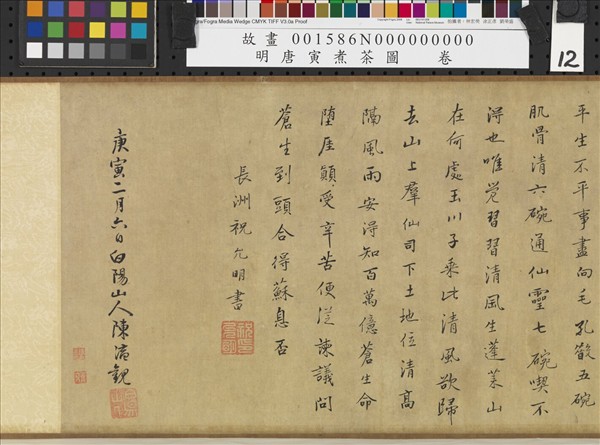 Fogra Media Wedge CMYK TIFF V3.0a Proof
故畫 001586N000000000
明唐寅煮茶圖 卷
12
平生不平事盡向毛孔散五碗
肌骨清六碗通仙靈七碗喫不
得也唯覺習習清風生蓬萊山
在何處玉川子乘此清風欲歸
去山上羣仙司下土地位清高
隔風雨安得知百萬億蒼生命
堕厓顛受辛苦便從諫議問
蒼生到頭合得蘇息否
長洲祝允明書
庚寅二月六日白陽山人陳淳觀